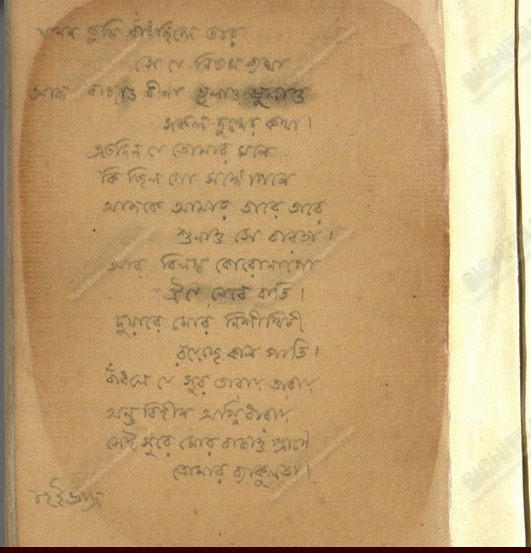 যখন তুমি বাঁধছিলে তার
সে যে বিষম ব্যথা
আজ বাজাও বীণা ভুলাও ভুলাও
সকল দুখের কথা।
এতদিন যে তোমার মনে
কি ছিল গো সঙ্গোপনে
আজকে আমার তারে তারে
শুনাও সে বারতা।
আর বিলম্ব কোরোনাগো
ঐ যে নেবে বাতি।
দুয়ারে মোর নিশীথিনী
রয়েছে কান পাতি।
বাঁধলে যে সুর তারায় তারায়
অন্তবিহীন অগ্নিধারায়,
সেই সুরে মোর বাজাও প্রাণে
তোমার ব্যাকুলতা।
ভাদ্র